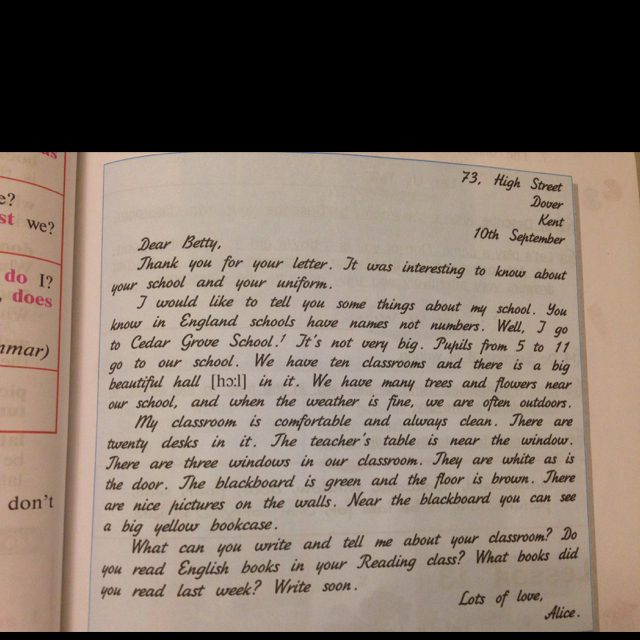 as
e?
st we?
do I?
, does
mmar)
don't
73, High Street
Dover
Kent
10th September
Dear Betty,
Thank you for your letter. It was interesting to know about
your school and your uniform.
I would like to tell you some things about my school. You
know in England schools have names not numbers. Well, I go
to Cedar Grove School.¹ It's not very big. Pupils from 5 to 11
go to our school. We have ten classrooms and there is a big
beautiful hall [hɔːl] in it. We have many trees and flowers near
our school, and when the weather is fine, we are often outdoors.
My classroom is comfortable and always clean. There are
twenty desks in it. The teacher's table is near the window.
There are three windows in our classroom. They are white as is
the door. The blackboard is green and the floor is brown. There
are nice pictures on the walls. Near the blackboard you can see
a big yellow bookcase.
What can you write and tell me about your classroom? Do
you read English books in your Reading class? What books did
you read last week? Write soon.
Lots of love,
Alice.